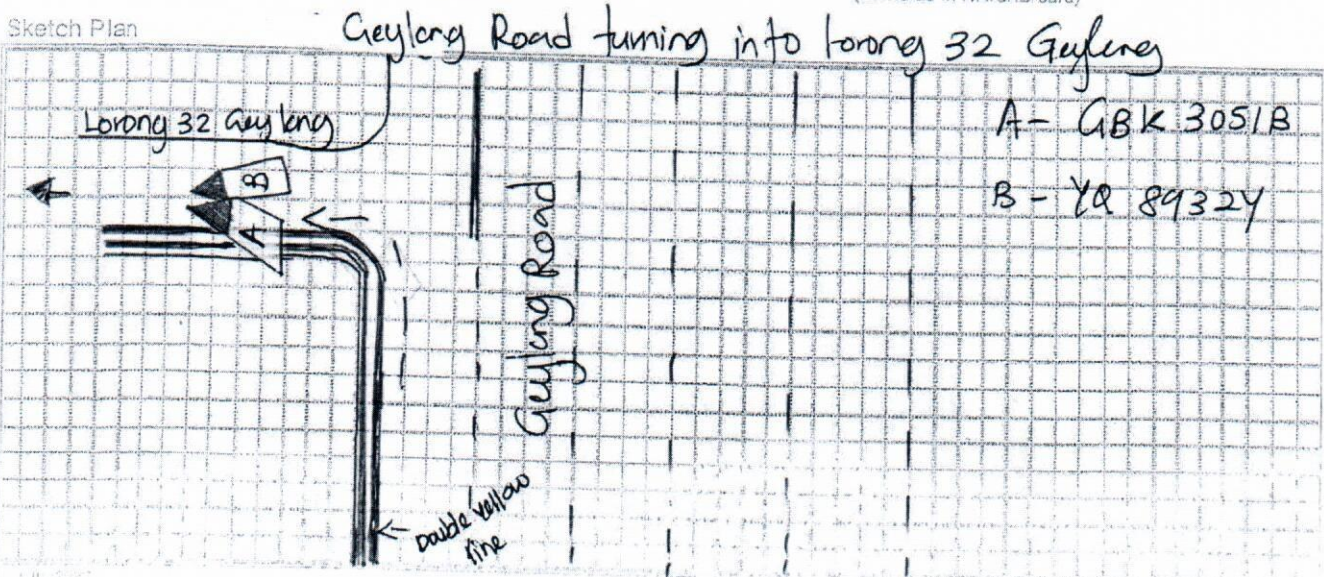 Sketch Plan
Geylang Road turning into Lorong 32 Geylang
Lorong 32 Geylang
A - GBK 3051B
B - YQ 8932Y
B
A
Geylang Road
Double Yellow
line